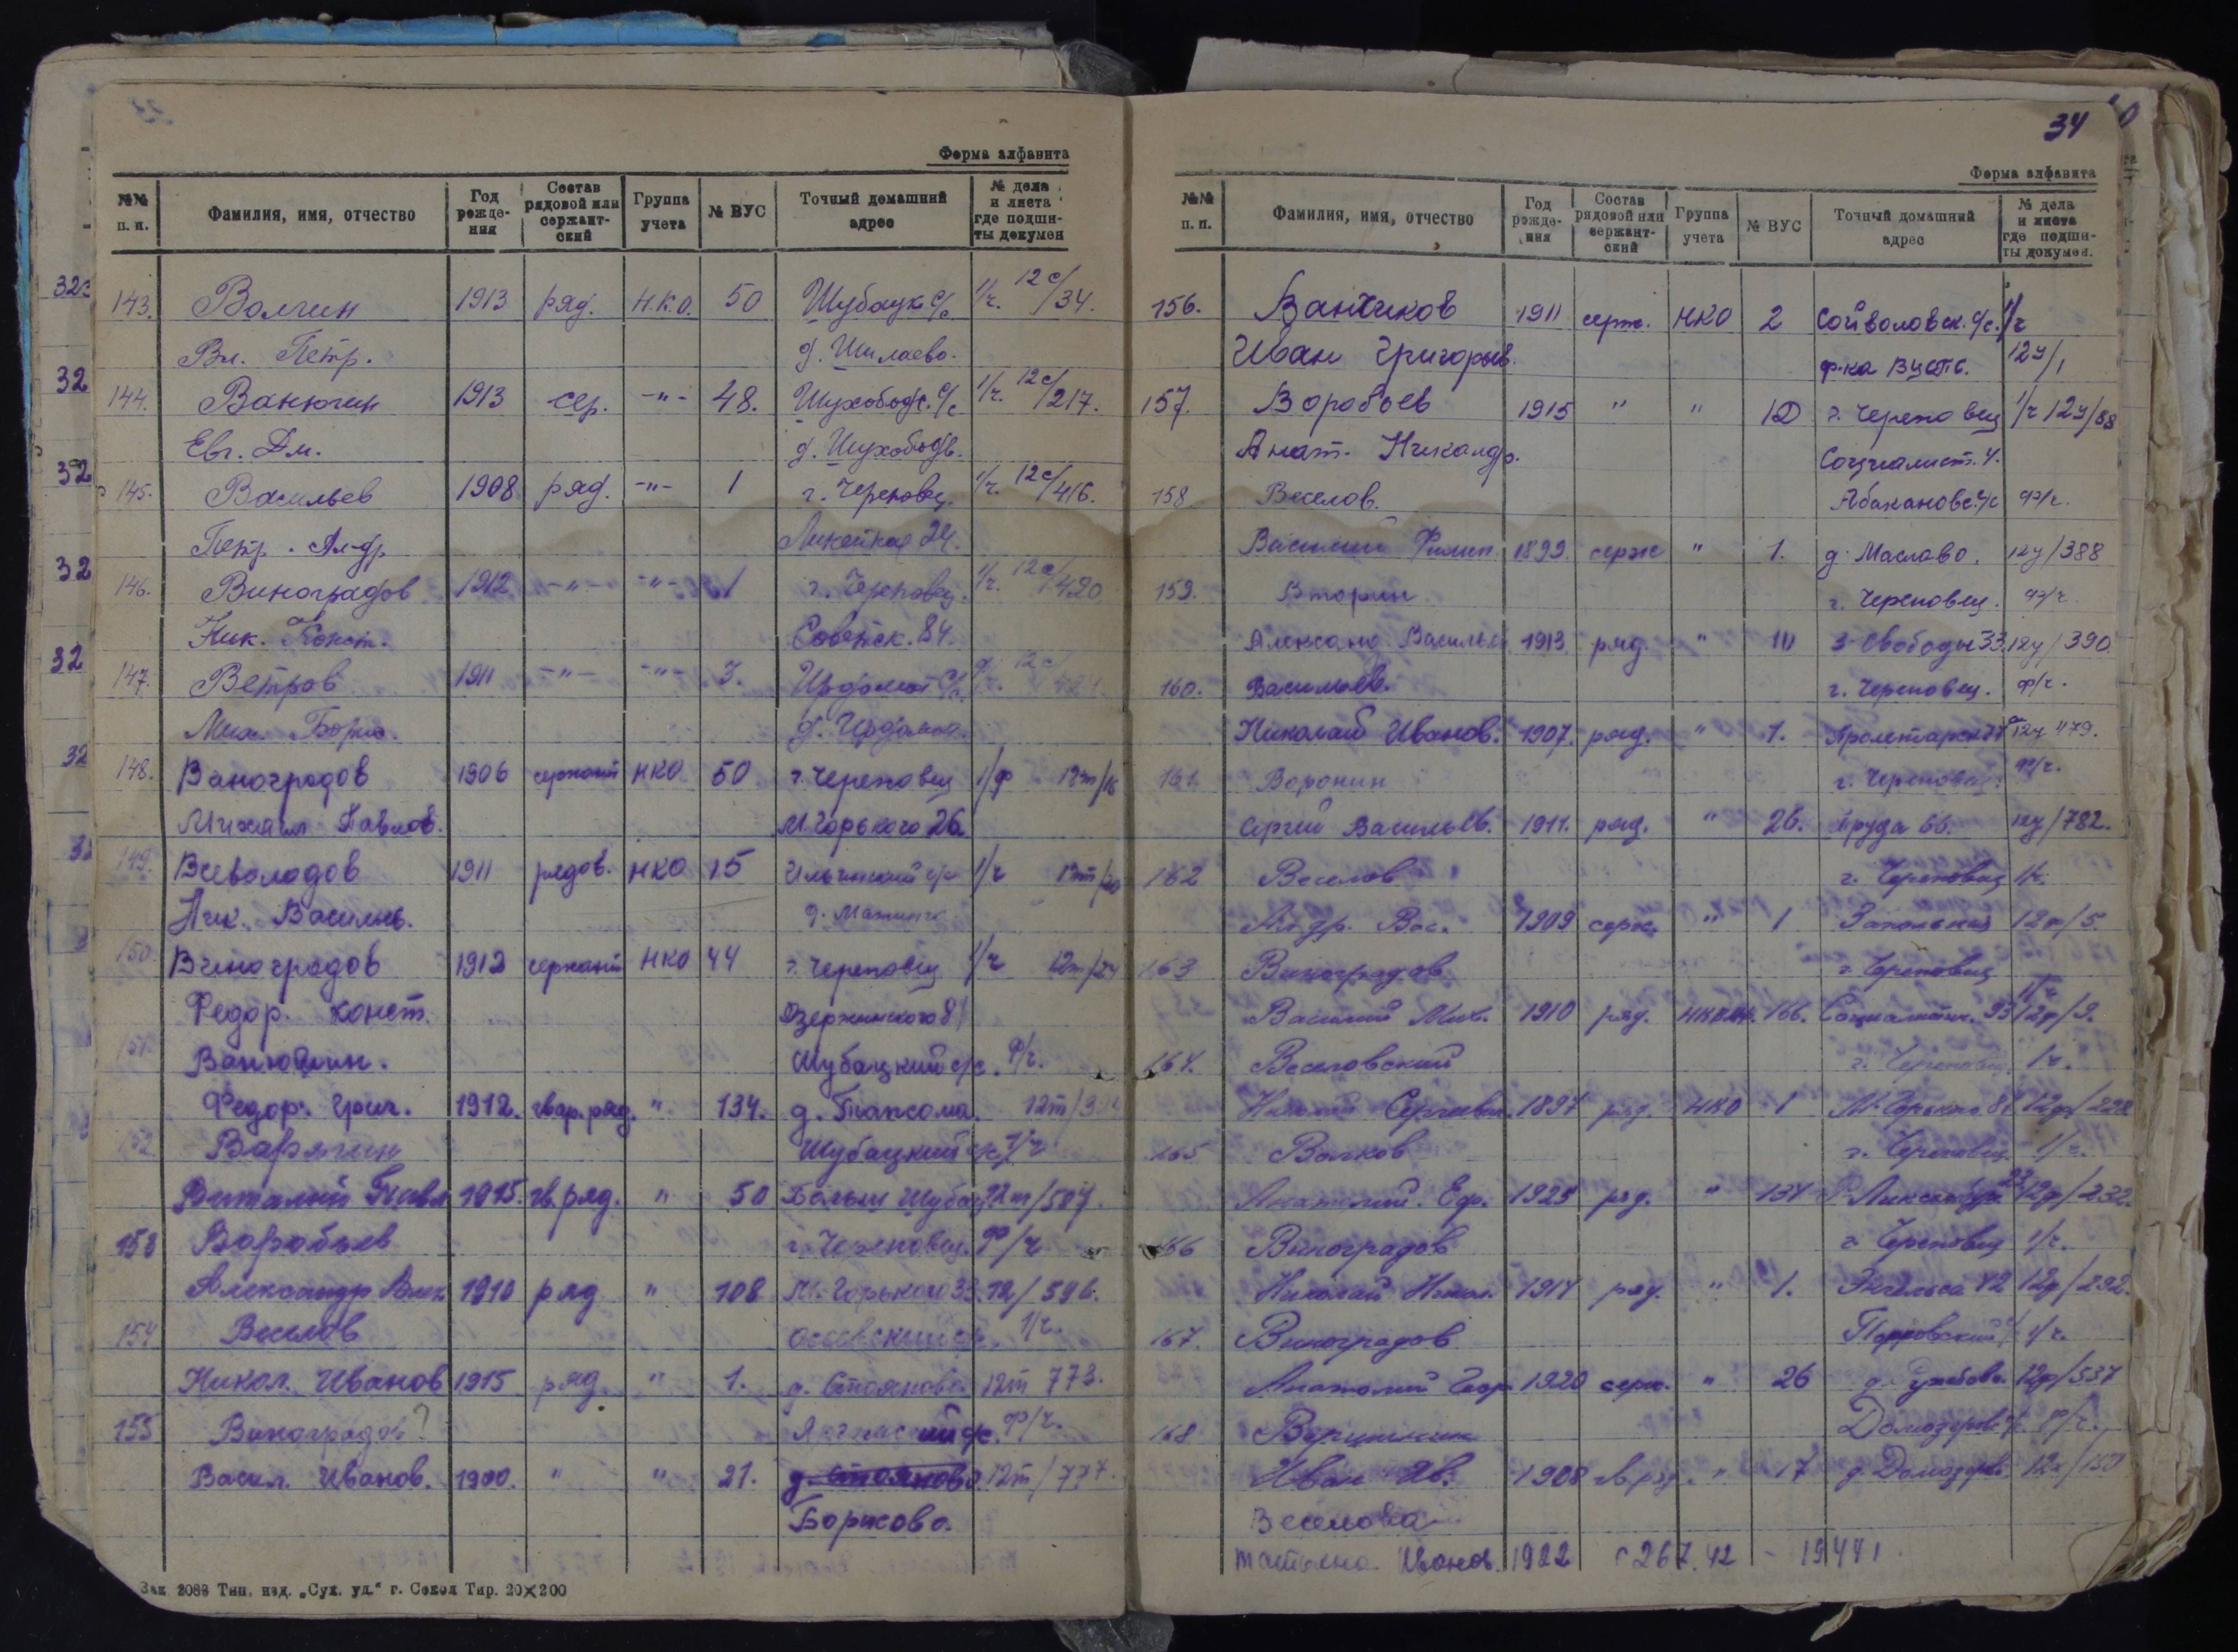 Форма алфавита
№№ п. п. Фамилия, имя, отчество Год рожде-ния Состав рядовой или сержант-ский Группа учета № ВУС Точный домашний адрес № дела и листа где подши-ты докумен
143. Волгин 1913 ряд. Н.К.О. 50 Шубацк. с/с 1/ч. 12с/34.
Вл. Петр. д. Шилаево.
144. Ванюгин 1913 сер. -"- 48. Шухободс. с/с 1/ч. 12с/217.
Евг. Дм. д. Шухободь.
145. Васильев 1908 ряд. -"- 1 г. Череповец. 1/ч. 12с/416.
Петр. Ал-др 24.
146. Виноградов 1912 -"- -"- 1 г. Череповец. 1/ч. 12с/420
Ник. Конст. Советск. 84.
147. Ветров 1911 -"- -"- 3. Ирдомск с/с 12с
Мих. Борис. д. Ирдомка.
148. Виноградов 1906 сержант НКО 50 г. Череповец 1/ф 12т/16
Михаил Павлов. М. Горького 26.
149. Всеволодов 1911 рядов. НКО 15 Ильинский с/с 1/ч 12т/20
Ник. Васильев. д.
150. Виноградов 1912 сержант НКО 44 г. Череповец 1/ч 12т/24
Федор. Конст. Дзержинского 81
151. Ванюшин. Шубацкий с/с. ф/ч.
Федор. Григ. 1912. гвар. ряд. " 134. д. Папсома. 12т/
152 Варягин Шубацкий с/с 1/ч
Виталий Павл 1915. гв. ряд. " 50 Больш Шубац 12т/507.
153 Воробьев г. Череповец. ф/ч
Александр Алек 1910 ряд " 108 М. Горького 33. 12/596.
154 Веселов 1/ч.
Никол. Иванов 1915 ряд " 1. д. Стояново 12т 773.
155 Виноградов? с/с. ф/ч.
Васил. Иванов. 1900. " " 21. д. Стояново 12т/777.
Борисово.
Зак 2088 Тип. изд. „Сух. уд.“ г. Сокол Тир. 20×200
34
Форма алфавита
№№ п. п. Фамилия, имя, отчество Год рожде-ния Состав рядовой или сержант-ский Группа учета № ВУС Точный домашний адрес № дела и листа где подши-ты докумен.
156. Ванчиков 1911 серж. НКО 2 Сойволовск. с/с. 1/ч
Иван Григорьев. ф-ка 12у/1
157. Воробьев 1915 " " 10 г. Череповец 1/ч 12у/88
Анат. Никандр. Социалист. 4.
158 Веселов. Абакановс. с/с ф/ч.
Василий Филип. 1899. серж " 1. д. Маслово. 12у/388
159. Вторин г. Череповец. ф/ч
Александ. Васильев 1913. ряд. " 10 З-Свободы 33. 12у/390.
160. Васильев. г. Череповец. ф/ч.
Николай Иванов. 1907. ряд. " 1. 12у 479.
161. Воронин г. Череповец. ф/ч.
Сергей Васильев. 1911. ряд. " 26. Труда 66. 12у/782.
162 Веселов г. Череповец 1/ч.
Ал-др. Вас. 1909 серж. " 1 12ф/5.
163 Виноградов г. Череповец 1/ч
Василий Мих. 1910 ряд. 166. Социалист. 93 12ф/9.
164. Веселовский г. Череповец. 1/ч.
Сергеев. 1897 ряд. НКО 1 М. Горького 81 12ф/228
165 Волков г. Череповец 1/ч.
Анатолий. Еф. 1925 ряд. " 134 23 12ф/232.
166 Виноградов г. Череповец 1/ч.
Николай 1914 ряд. " 1. Энгельса 42 12ф/292.
167. Виноградов 1/ч.
Анатолий Егор. 1920 серж. " 26 12ф/537
168 Вершинин Домозеров. с/с ф/ч.
Иван Ив. 1908 гв. ряд. " 17 д. Домозеро 12х/150
Веселова
Татьяна Иванов. 1922 с 267.42 - 19441